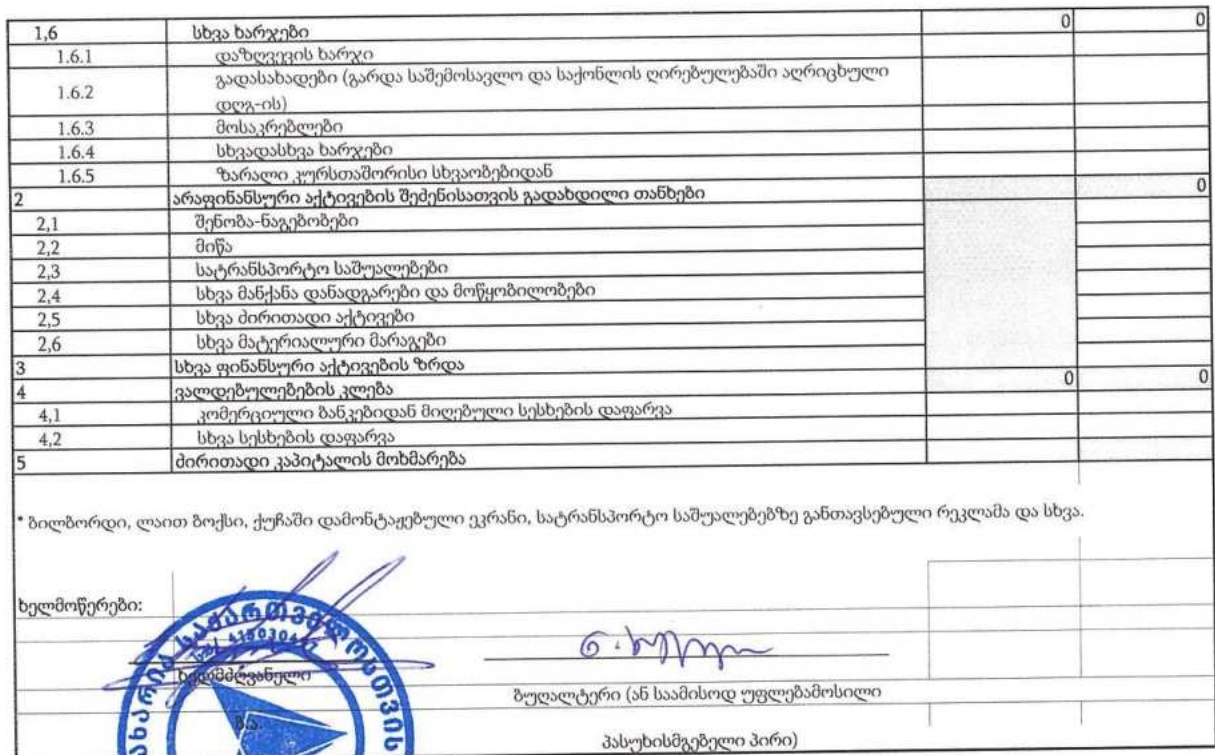 1,6 სხვა ხარჯები 0 0
1.6.1 დაზღვევის ხარჯი
1.6.2 გადასახადები (გარდა საშემოსავლო და საქონლის ღირებულებაში აღრიცხული
დღგ-ის)
1.6.3 მოსაკრებლები
1.6.4 სხვადასხვა ხარჯები
1.6.5 ზარალი კურსთაშორისი სხვაობებიდან
2 არაფინანსური აქტივების შეძენისათვის გადახდილი თანხები 0
2,1 შენობა-ნაგებობები
2,2 მიწა
2,3 სატრანსპორტო საშუალებები
2,4 სხვა მანქანა დანადგარები და მოწყობილობები
2,5 სხვა ძირითადი აქტივები
2,6 სხვა მატერიალური მარაგები
3 სხვა ფინანსური აქტივების ზრდა
4 ვალდებულებების კლება 0 0
4,1 კომერციული ბანკებიდან მიღებული სესხების დაფარვა
4,2 სხვა სესხების დაფარვა
5 ძირითადი კაპიტალის მოხმარება
* ბილბორდი, ლაით ბოქსი, ქუჩაში დამონტაჟებული ეკრანი, სატრანსპორტო საშუალებებზე განთავსებული რეკლამა და სხვა.
ხელმოწერები:
საქართველოსთვის
ხელმძღვანელი
ბუღალტერი (ან საამისოდ უფლებამოსილი
ბ.ა.
პასუხისმგებელი პირი)